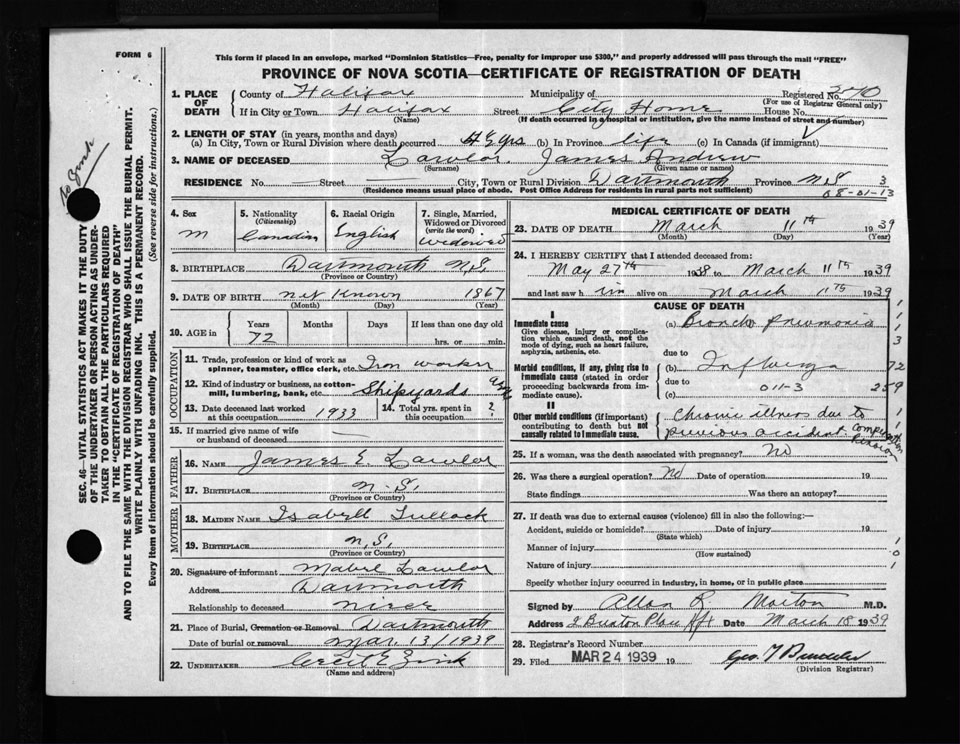 FORM 6
This form if placed in an envelope, marked "Dominion Statistics—Free, penalty for improper use $300," and properly addressed will pass through the mail "FREE"
PROVINCE OF NOVA SCOTIA—CERTIFICATE OF REGISTRATION OF DEATH
1. PLACE OF DEATH
County of Halifax Municipality of Registered No.
(For use of Registrar General only)
If in City or Town Halifax Street City Home House No.
(Name) (If death occurred in a hospital or institution, give the name instead of street and number)
2. LENGTH OF STAY (in years, months and days)
(a) In City, Town or Rural Division where death occurred yrs (b) In Province life (c) In Canada (if immigrant)
3. NAME OF DECEASED Lawlor, James Andrew
(Surname) (Given name or names)
RESIDENCE No. Street City, Town or Rural Division Dartmouth Province N.S. 3
(Residence means usual place of abode. Post Office Address for Residents in rural parts not sufficient) 08-01-13
4. Sex M
5. Nationality (Citizenship) Canadian
6. Racial Origin English
7. Single, Married, Widowed or Divorced (write the word) Widowed
8. BIRTHPLACE Dartmouth N.S.
(Province or Country)
9. DATE OF BIRTH not known 1867
(Month) (Day) (Year)
10. AGE in Years Months Days If less than one day old
72 hrs. or min.
OCCUPATION
11. Trade, profession or kind of work as spinner, teamster, office clerk, etc. Iron worker
12. Kind of industry or business, as cotton-mill, lumbering, bank, etc. Shipyards
13. Date deceased last worked at this occupation 1933
14. Total yrs. spent in this occupation ?
15. If married give name of wife or husband of deceased —
FATHER
16. NAME James E. Lawlor
17. BIRTHPLACE N.S.
(Province or Country)
MOTHER
18. MAIDEN NAME Isabell Tullock
19. BIRTHPLACE N.S.
(Province or Country)
20. Signature of informant Mabel Lawlor
Address Dartmouth
Relationship to deceased niece
21. Place of Burial, Cremation or Removal Dartmouth
Date of burial or removal Mar. 13/1939
22. UNDERTAKER Cecil E Zink
(Name and address)
MEDICAL CERTIFICATE OF DEATH
23. DATE OF DEATH March 11th 1939
(Month) (Day) (Year)
24. I HEREBY CERTIFY that I attended deceased from:
May 27th 1938 to March 11th 1939
and last saw him alive on March 11th 1939
CAUSE OF DEATH
I
Immediate cause
Give disease, injury or complication which caused death, not the mode of dying, such as heart failure, asphyxia, asthenia, etc.
(a) Broncho pneumonia
due to
Morbid conditions, if any, giving rise to immediate cause (stated in order proceeding backwards from immediate cause)
(b) Influenza 72
due to 011-3 259
(c)
II
Other morbid conditions (if important) contributing to death but not causally related to immediate cause.
Chronic illness due to
previous accident Compensation Pension
25. If a woman, was the death associated with pregnancy? No
26. Was there a surgical operation? No Date of operation 19
State findings Was there an autopsy?
27. If death was due to external causes (violence) fill in also the following:—
Accident, suicide or homicide? Date of injury 19
(State which)
Manner of injury
(How sustained)
Nature of injury
Specify whether injury occurred in industry, in home, or in public place
Signed by Allan R Morton M.D.
Address Hfx Date March 18 1939
28. Registrar's Record Number
29. Filed MAR 24 1939 19
(Division Registrar)
SEC. 46—VITAL STATISTICS ACT MAKES IT THE DUTY OF THE UNDERTAKER OR PERSON ACTING AS UNDERTAKER TO OBTAIN ALL THE PARTICULARS REQUIRED IN THE "CERTIFICATE OF REGISTRATION OF DEATH"
AND TO FILE THE SAME WITH THE DIVISION REGISTRAR WHO SHALL ISSUE THE BURIAL PERMIT.
WRITE PLAINLY WITH UNFADING INK. THIS IS A PERMANENT RECORD.
Every item of information should be carefully supplied. (See reverse side for instructions.)